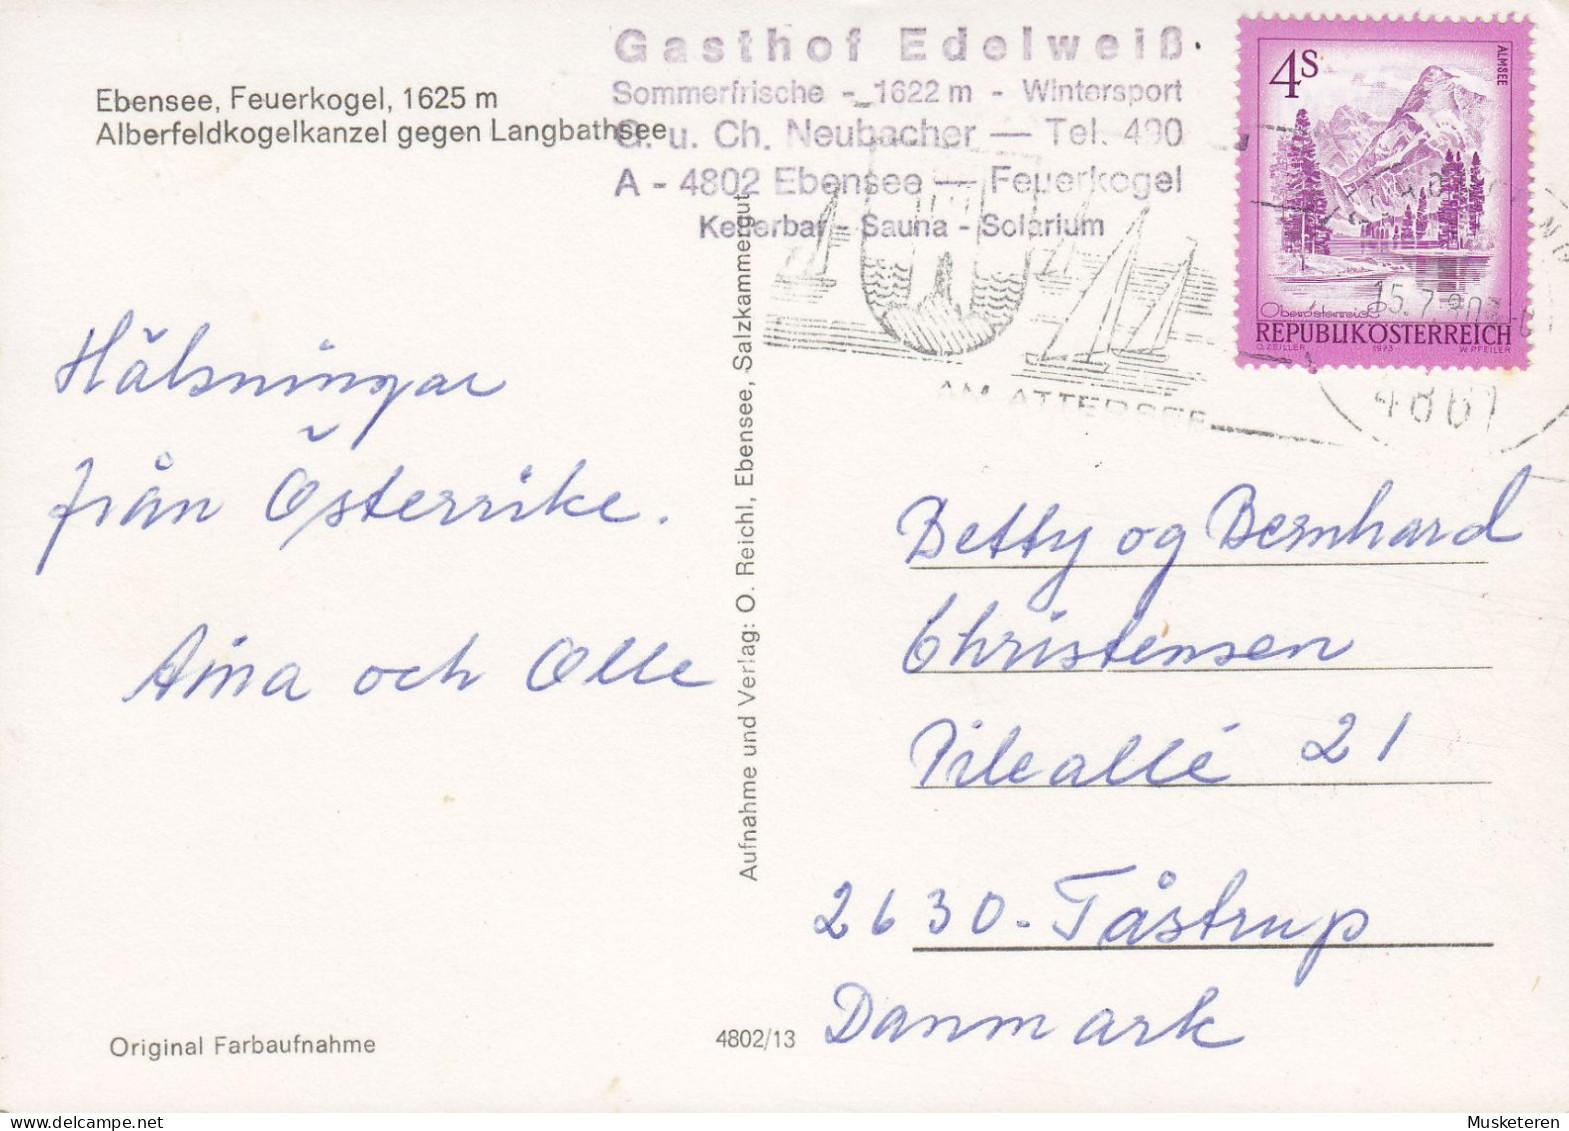 Ebensee, Feuerkogel, 1625 m
Alberfeldkogelkanzel gegen Langbathsee
Gasthof Edelweiß
Sommerfrische - 1622 m - Wintersport
G. u. Ch. Neubacher — Tel. 490
A - 4802 Ebensee — Feuerkogel
Kellerbar - Sauna - Solarium
4S
ALMSEE
Oberösterreich
REPUBLIK ÖSTERREICH
O. ZEILLER 1973 W. PFEILER
15.7.80
4861
AM ATTERSEE
Hälsningar
från Österrike.
Aina och Olle
Aufnahme und Verlag: O. Reichl, Ebensee, Salzkammergut
Betty og Bernhard
Christensen
Pilealle 21
2630 - Tåstrup
Danmark
Original Farbaufnahme
4802/13
Musketeren @ delcampe.net